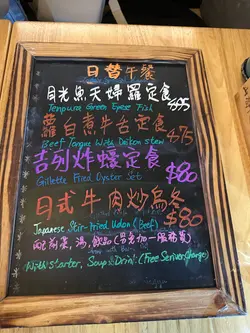 日替午餐
目光魚天婦羅定食 $95
Tenpura Green Eyese Fish
蘿白煮牛舌定食 $75
Beef Tongue With Daikon stew
吉列炸蠔定食 $80
Gillette Fried Oyster Set
日式牛肉炒烏冬 $80
Japanese Stir-Fried Udon (Beef)
配前菜，湯，飲品(另免加一服務費)
With starter, Soup & Drink (Free Server Charge)